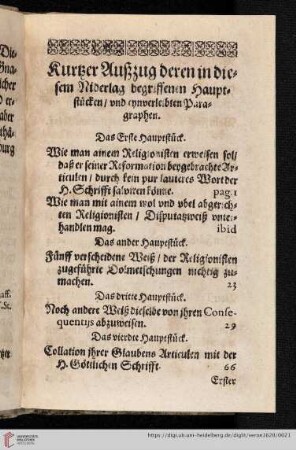 Die-
Gna-
burg
Kurtzer Außzug deren in die-
sem Niderlag begriffenen Haupt-
stücken / vnd eynverleibten Para-
graphen.
Das Erste Hauptstück.
Wie man ainem Religionisten erweisen sol /
daß er seiner Reformation beygebrachte Ar-
ticulen / durch kein pur lauteres Wort der
H. Schrifft salviren könne. pag 1
Wie man mit ainem wol vnd vbel abgerich-
ten Religionisten / Disputatzweiß vnter-
handlen mag. ibid
Das ander Hauptstück.
Fünff verscheidene Weiß / der Religionisten
zugeführte Dolmetschungen nichtig zu-
machen. 23
Das dritte Hauptstück.
Noch andere Weiß dieselbe von ihren Conse-
quentijs abzuweisen. 29
Das vierdte Hauptstück.
Collation ihrer Glaubens Articulen mit der
H. Göttlichen Schrifft. 66
Erster
UNIVERSITÄTS-
BIBLIOTHEK
HEIDELBERG